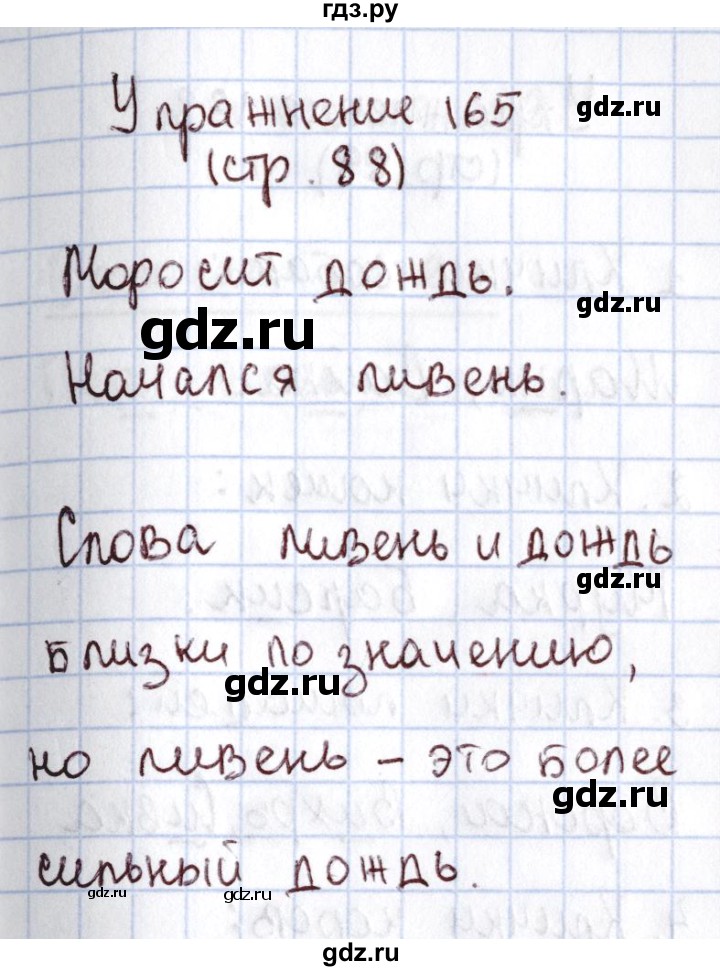 гдз.ру
Упражнение 165
gdz.ru
(стр. 88)
Моросит дождь.
gdz.ru
gdz.ru
Начался ливень.
Слова ливень и дождь
gdz.ru
близки по значению,
gdz.ru
но ливень – это более
gdz.ru
сильный дождь.
gdz.ru
gdz.ru
gdz.ru